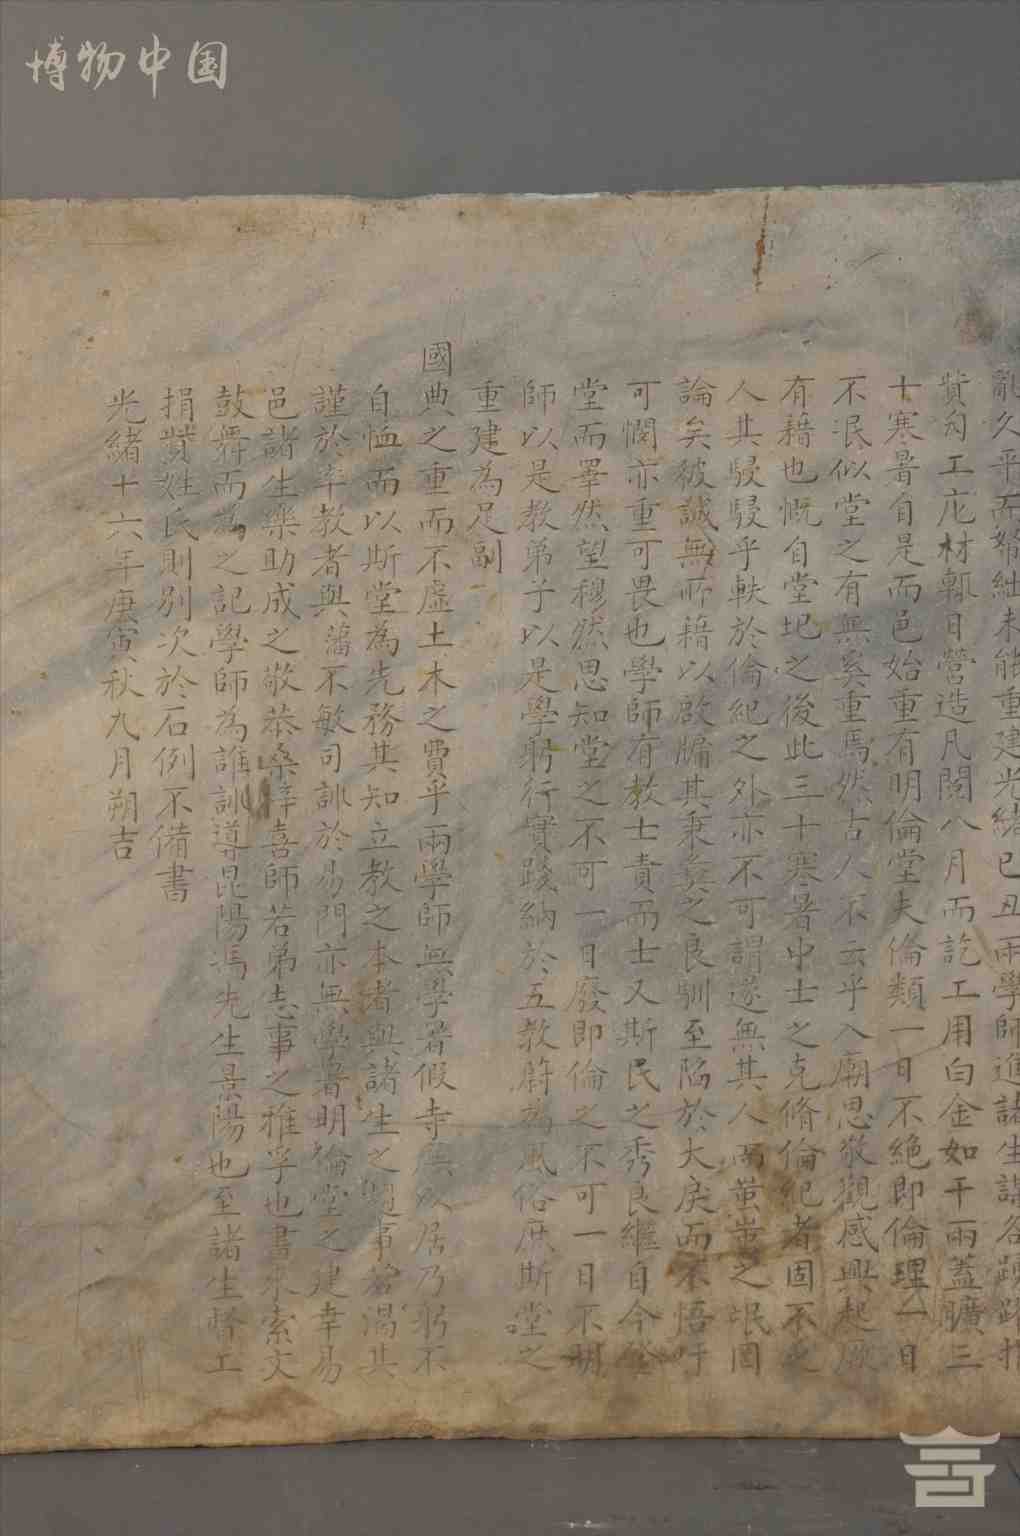 博物中国
亂久平而帑絀未能重建光緒己丑兩學師進諸生謀各踴躍捐
貲匃工庀材輒日營造凡閱八月而訖工用白金如干兩蓋曠三
十寒暑自是而邑始重有明倫堂夫倫類一日不絶即倫理一日
不泯似堂之有無奚重焉然古人不云乎入廟思敬觀感興起厥
有藉也慨自堂圯之後此三十寒暑中士之克脩倫紀者固不乏
人其駸駸乎軼於倫紀之外亦不可謂遂無其人而蚩蚩之氓罔
論矣彼誠無所藉以啟牖其秉彝之良馴至陷於大戾而不悟吁
可憫亦重可畏也學師有教士責而士又斯民之秀良繼自今登
堂而睪然望穆然思知堂之不可一日廢即倫之不可一日不明
師以是教弟子以是學躬行實踐納於五教蔚為風俗庶斯堂之
重建為足副
國典之重而不虛土木之費乎兩學師無學署假寺廡以居乃躬不
自恤而以斯堂為先務其知立教之本者與諸生之趨事若渴其
謹於率教者與藩不敏司訓於易門亦無學署明倫堂之建幸易
邑諸生樂助成之敬恭桑梓喜師若弟志事之雅孚也書來索文
鼓舞而為之記學師為誰訓導昆陽馮先生景陽也至諸生督工
捐貲姓氏則別次於石例不備書
光緒十六年庚寅秋九月朔吉